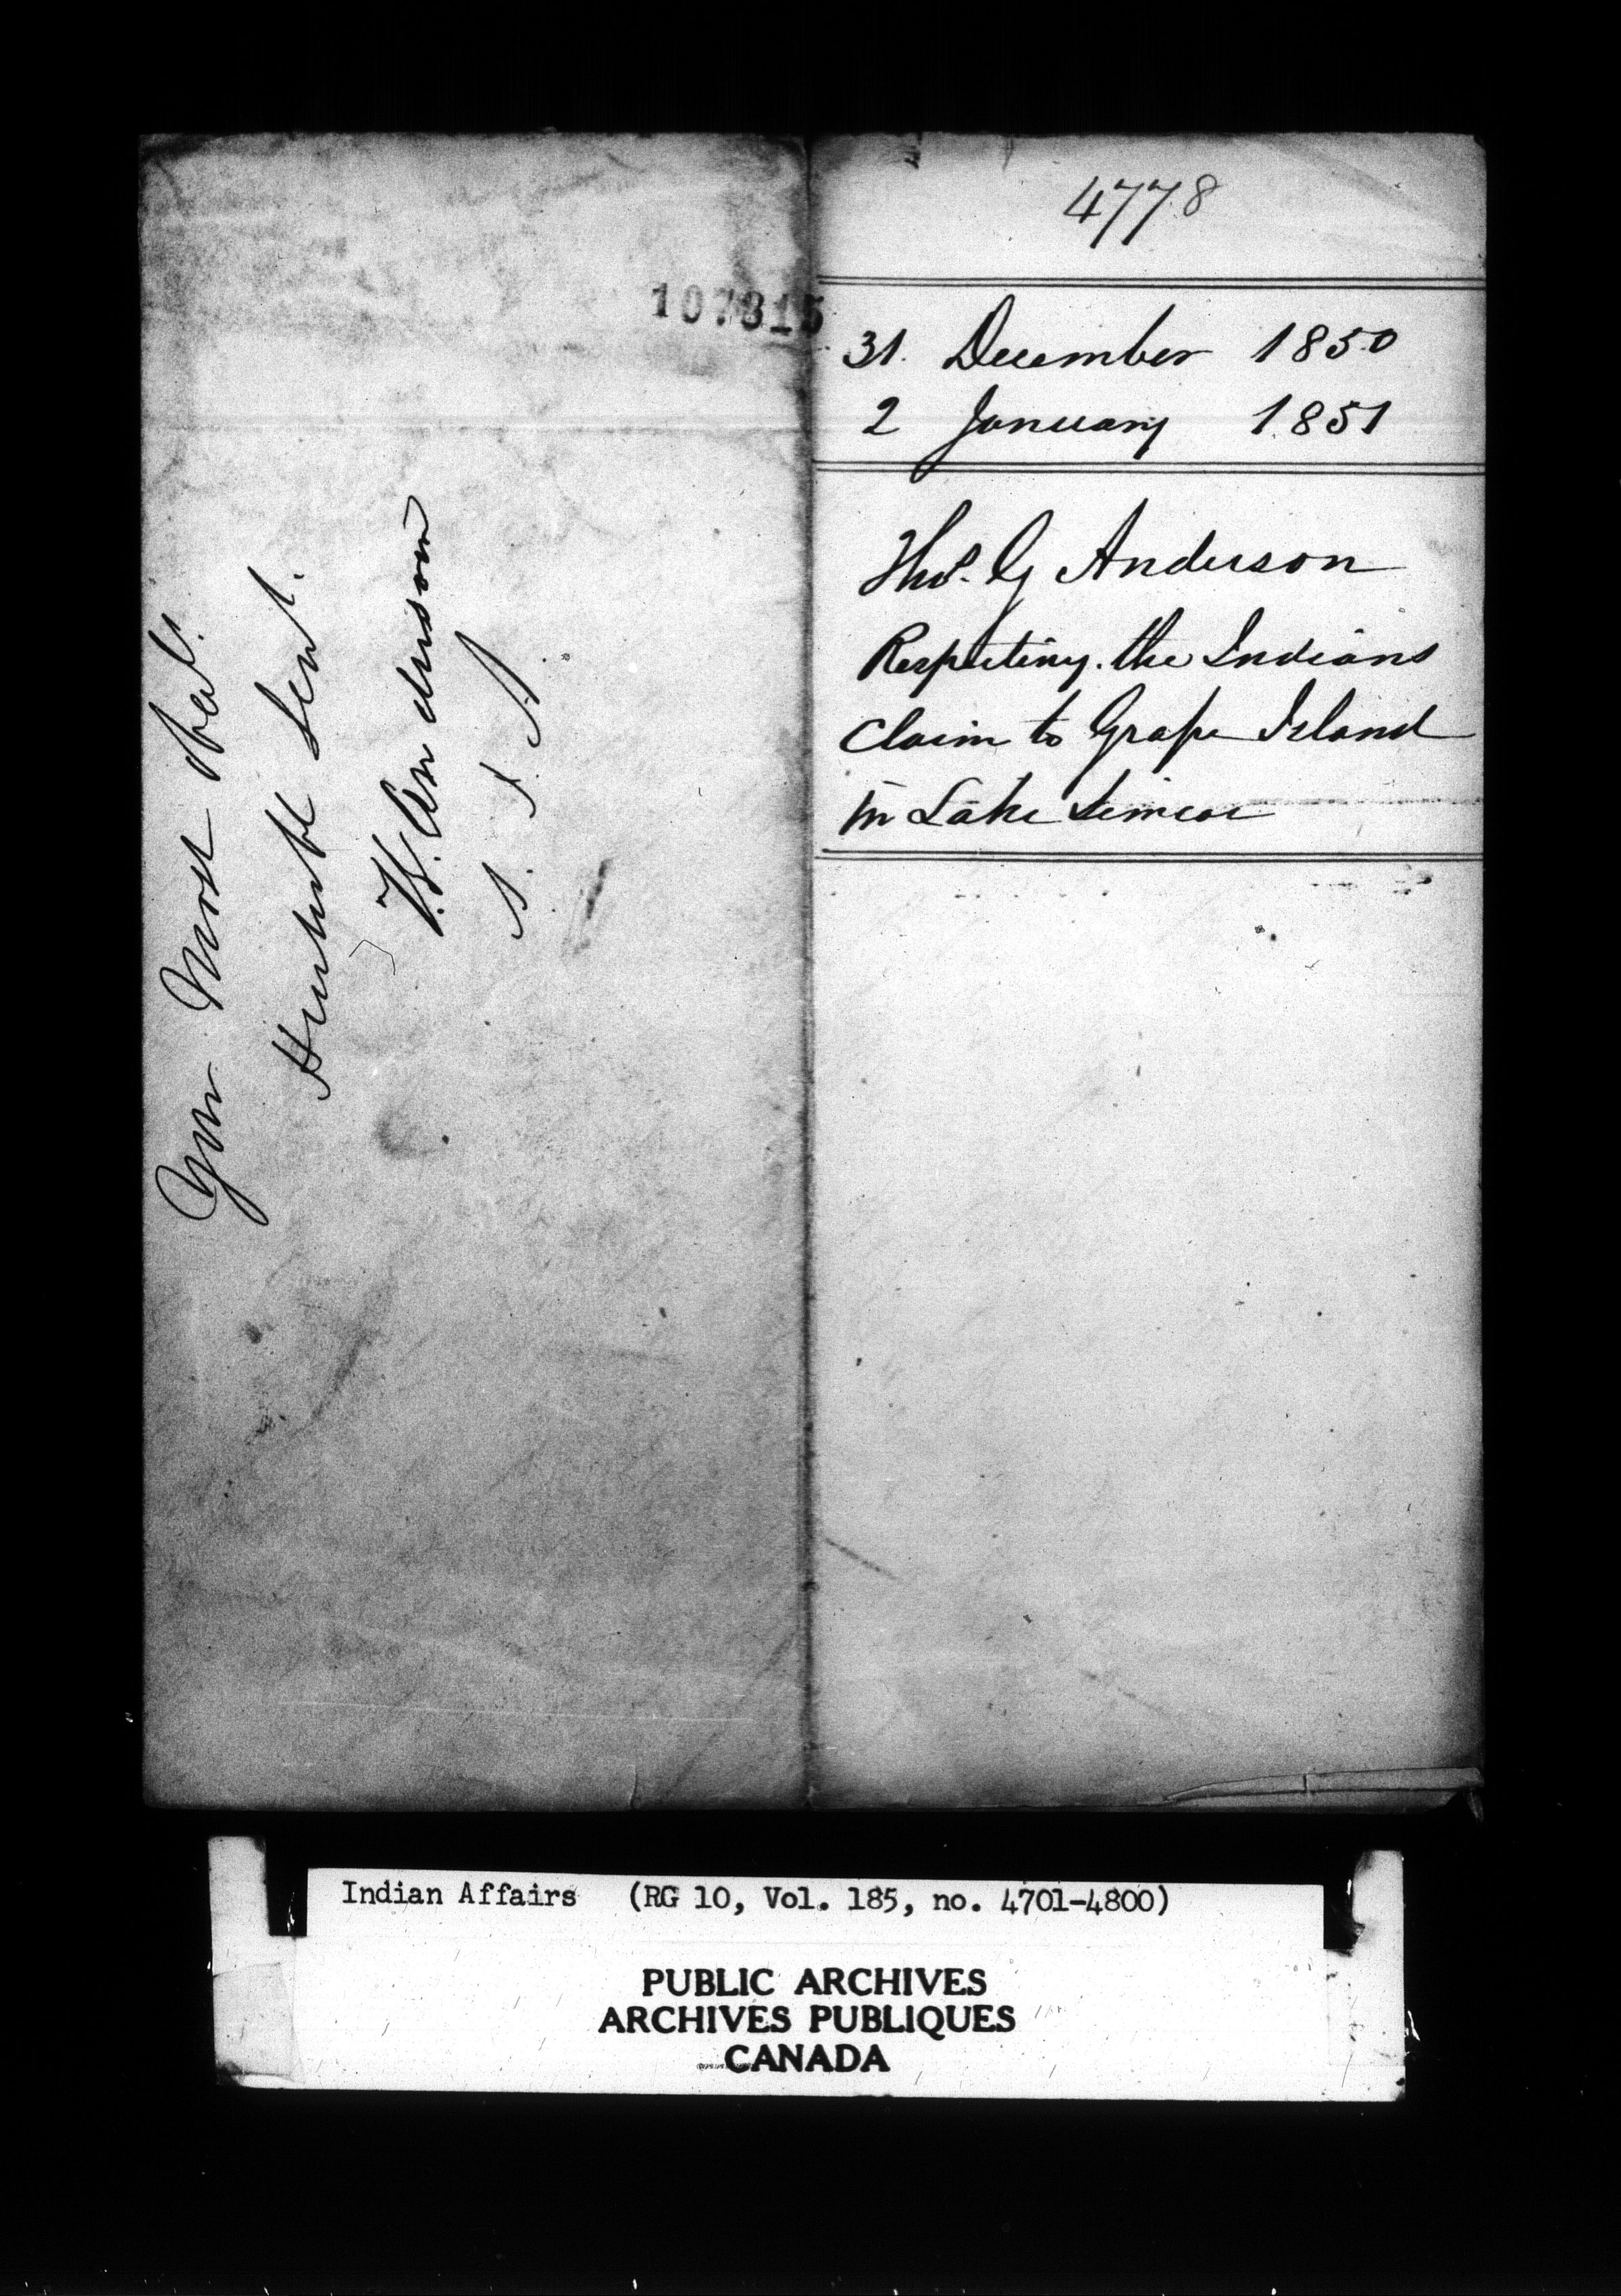 107815
Your Most Obed.
Humble Servt.
T.G. Anderson
S. I. A.
4778
31. December 1850
2 January 1851
Thos. G Anderson
Respecting the Indians
Claim to Grape Island
in Lake Simcoe
Indian Affairs (RG 10, Vol. 185, no. 4701-4800)
PUBLIC ARCHIVES
ARCHIVES PUBLIQUES
CANADA